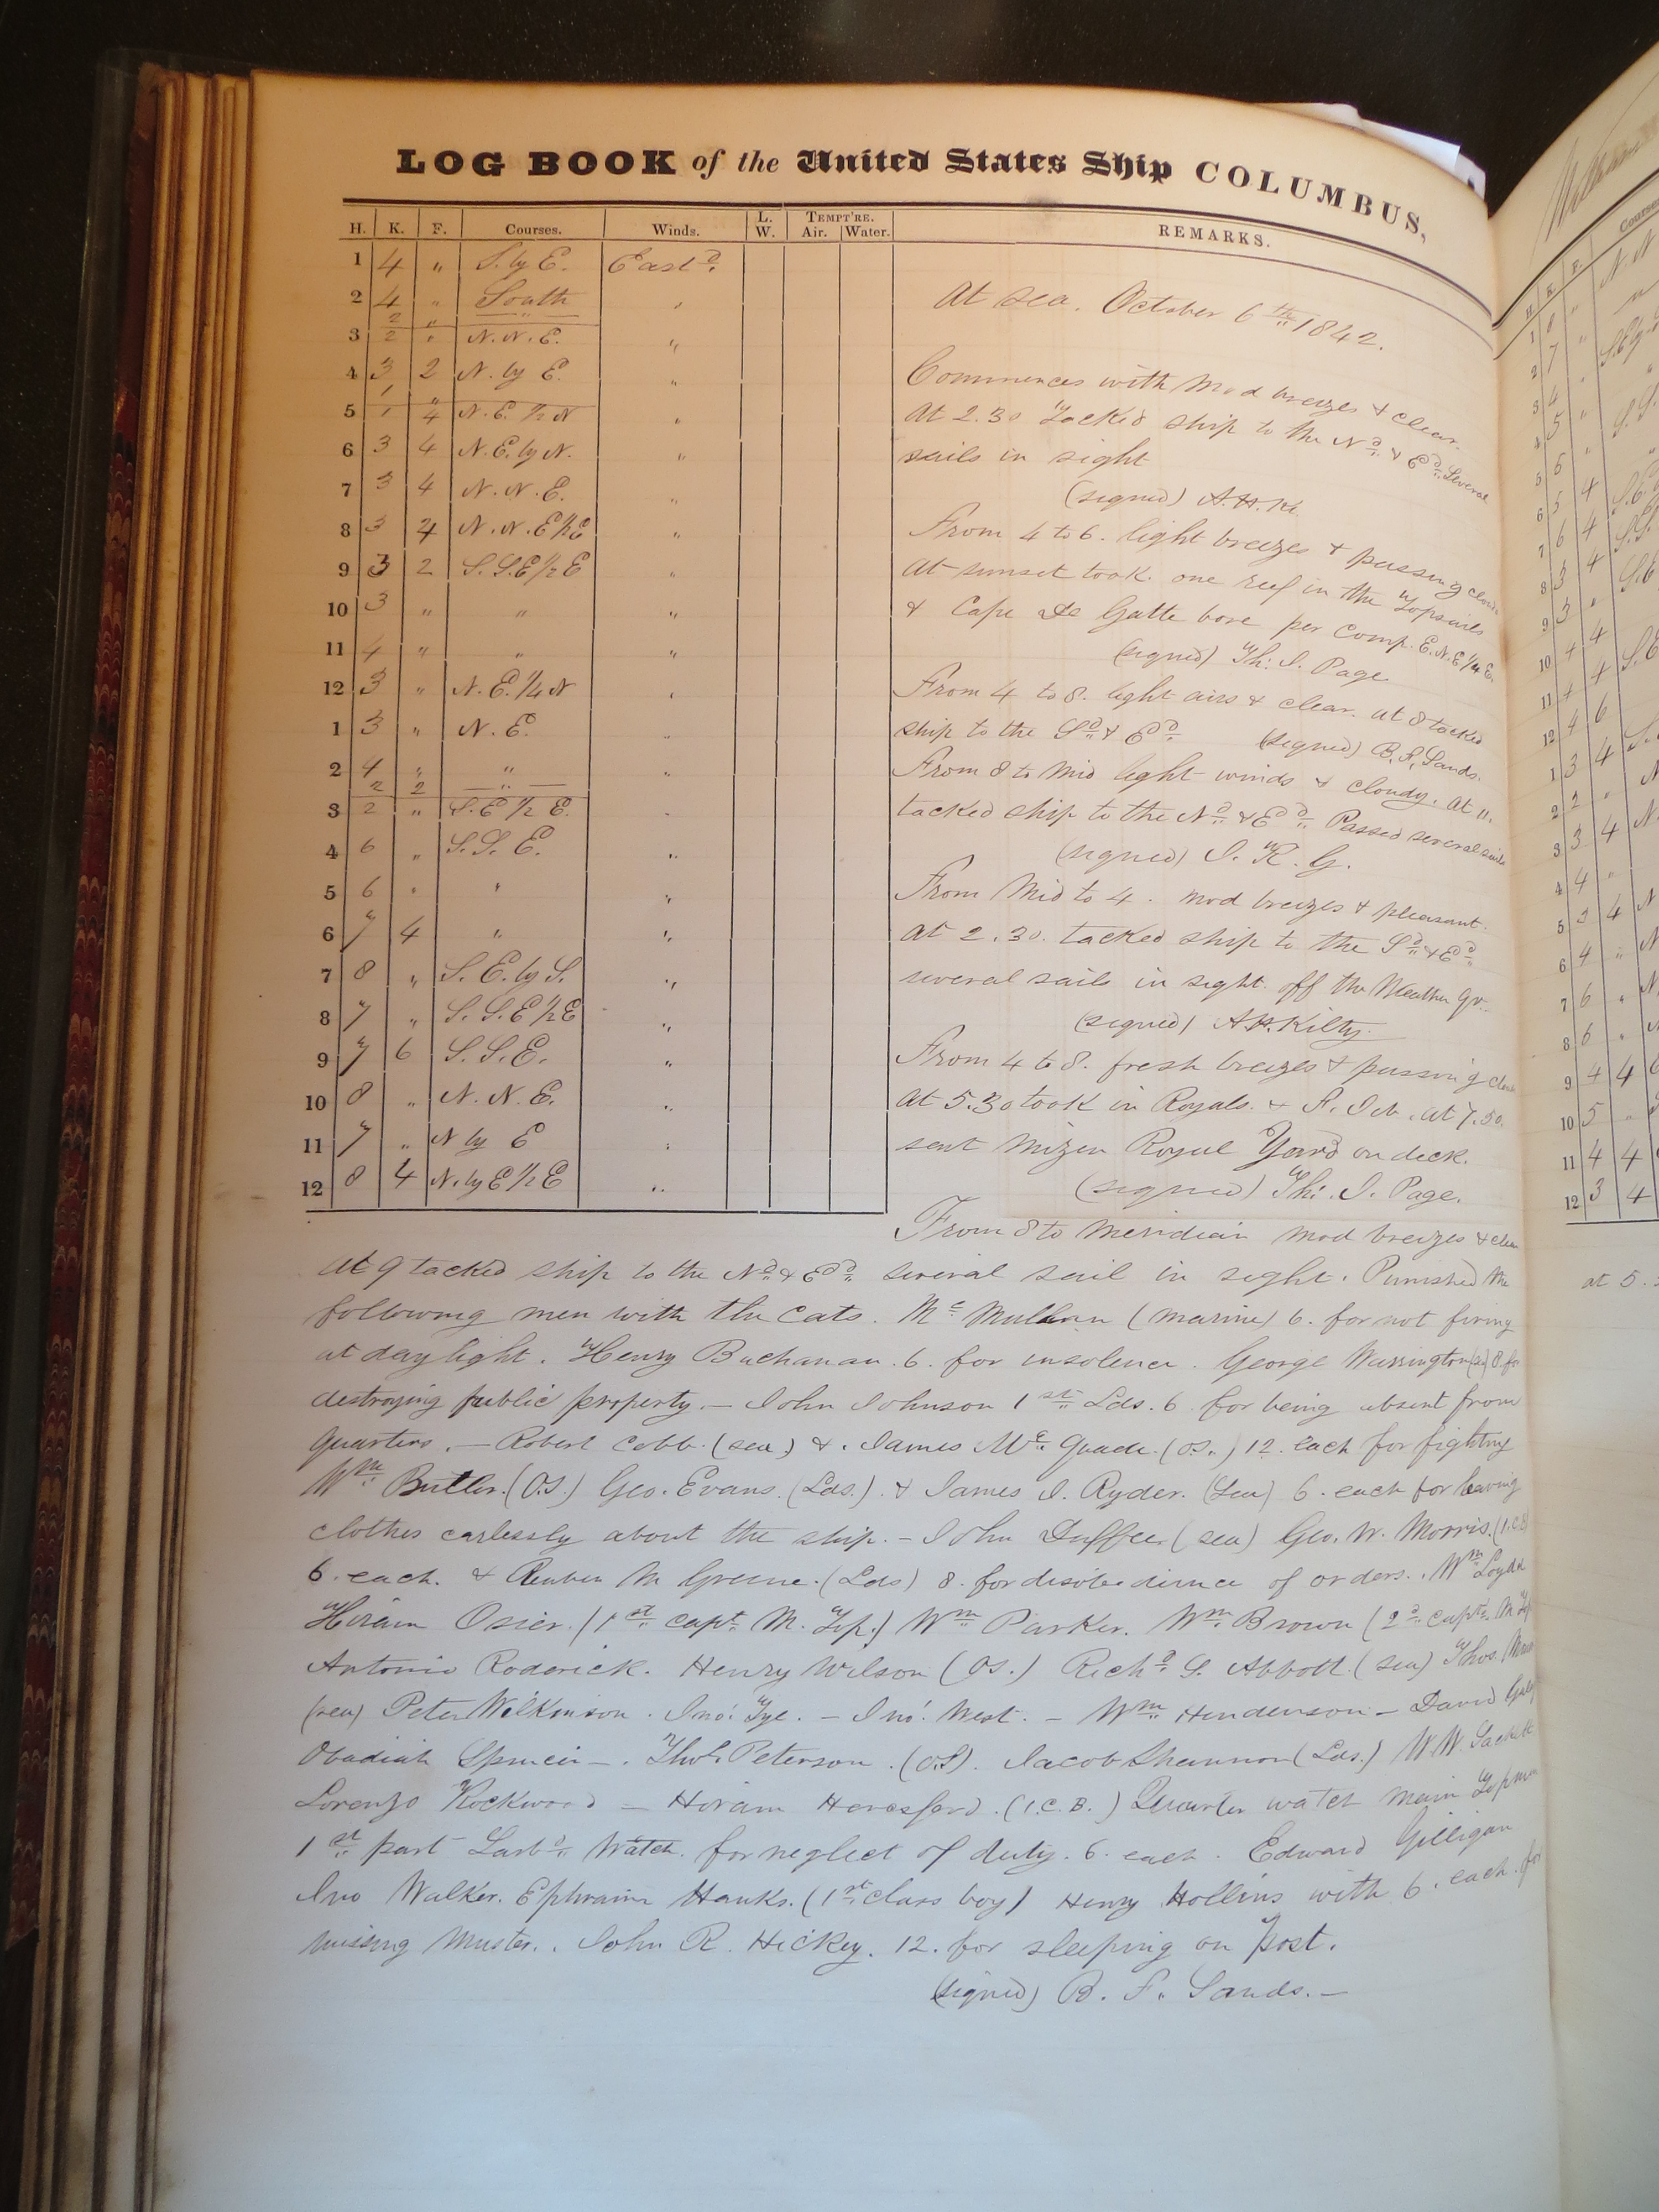 LOG BOOK of the United States Ship COLUMBUS,
H. K. F. Courses. Winds. L. W. TEMPT'RE. Air. Water. REMARKS.
1 4 " S. by E. East d.
2 4 " South "
2 " "
3 2 " N. N. E. "
4 3 2 N. by E. "
1 "
5 1 4 N. E. 1/2 N "
6 3 4 N. E. by N. "
7 3 4 N. N. E. "
8 3 4 N. N. E 1/2 E "
9 3 2 S. S. E 1/2 E "
10 3 " " "
11 4 " " "
12 3 " N. E. 1/4 N "
1 3 " N. E. "
2 4 " " "
2 2 "
3 2 " S. E 1/2 E. "
4 6 " S. S. E. "
5 6 " " "
6 7 4 " "
7 8 " S. E. by S. "
8 7 " S. S. E 1/2 E "
9 7 6 S. S. E. "
10 8 " N. N. E. "
11 7 " N by E "
12 8 4 N. by E 1/2 E "
At sea. October 6th 1842.
Commences with Mod breezes & clear.
At 2.30 Tacked ship to the Nd. & Ed. Several
sails in sight
(signed) A. H. K.
From 4 to 6. light breezes & passing clouds
At sunset took one reef in the Topsails
& Cape De Gatte bore per Comp. E. N. E 1/4 E.
(signed) Th: J. Page
From 4 to 8. light airs & clear. at 8 tacked
ship to the Sd & Ed (signed) B. F. Sands.
From 8 to Mid light winds & cloudy. At 11.
tacked ship to the Nd & Ed. Passed several sails
(signed) J. R. G.
From Mid to 4. mod breezes & pleasant.
At 2.30. tacked ship to the Sd & Ed
several sails in sight off the Weather Qr.
(signed) A H. Kilty.
From 4 to 8. fresh breezes & passing clouds
At 5.30 took in Royals. & F. Jib. At 7.30.
sent Mizen Royal Yard on deck.
(signed) Th: J. Page.
From 8 to Meridian Mod breezes & clear
At 9 tacked ship to the Nd & Ed. several sail in sight. Punished the
following men with the Cats. Mc Mullan (Marine) 6. for not firing
at daylight. Henry Buchanan. 6. for insolence. George Warrington (sea) 8. for
destroying public property. — John Johnson 1st Lds. 6 for being absent from
Quarters. — Robert Cobb. (sea) & James Mc Quade. (O.S.) 12. each for fighting
Wm Butler. (O.S.) Geo. Evans. (Lds.) & James J. Ryder. (Sea) 6. each for leaving
clothes carlessly about the ship. — John Duffee (sea) Geo. W. Morris. (1.C.B)
6. each. & Reuben M Greene. (Lds) 8. for disobedience of orders. Wm Loyd &
Hiram Osier. (1st capt. M. Top.) Wm Parker. Wm Brown (2d Capt. M Top
Antonio Roderick. Henry Wilson (O.S.) Richd S. Abbott. (sea) Thos.
(sea) Peter Wilkinson. Jno: Tye. — Jno: West. — Wm Henderson — David
Obadiah — Thos. Peterson. (O.S). Jacob Shannon (Lds.) W. W.
Lorenzo Rockwood — Hiram (1. C. B.) Quarter watch Main Topmen
1st part Larbd Watch. for neglect of duty. 6. each. Edward Gilligan
Jno Walker. Ephraim Hanks. (1st Class boy) Henry Hollins with 6. each. for
missing Muster. John R. Hickey. 12. for sleeping on post.
(signed) B. F. Sands. —